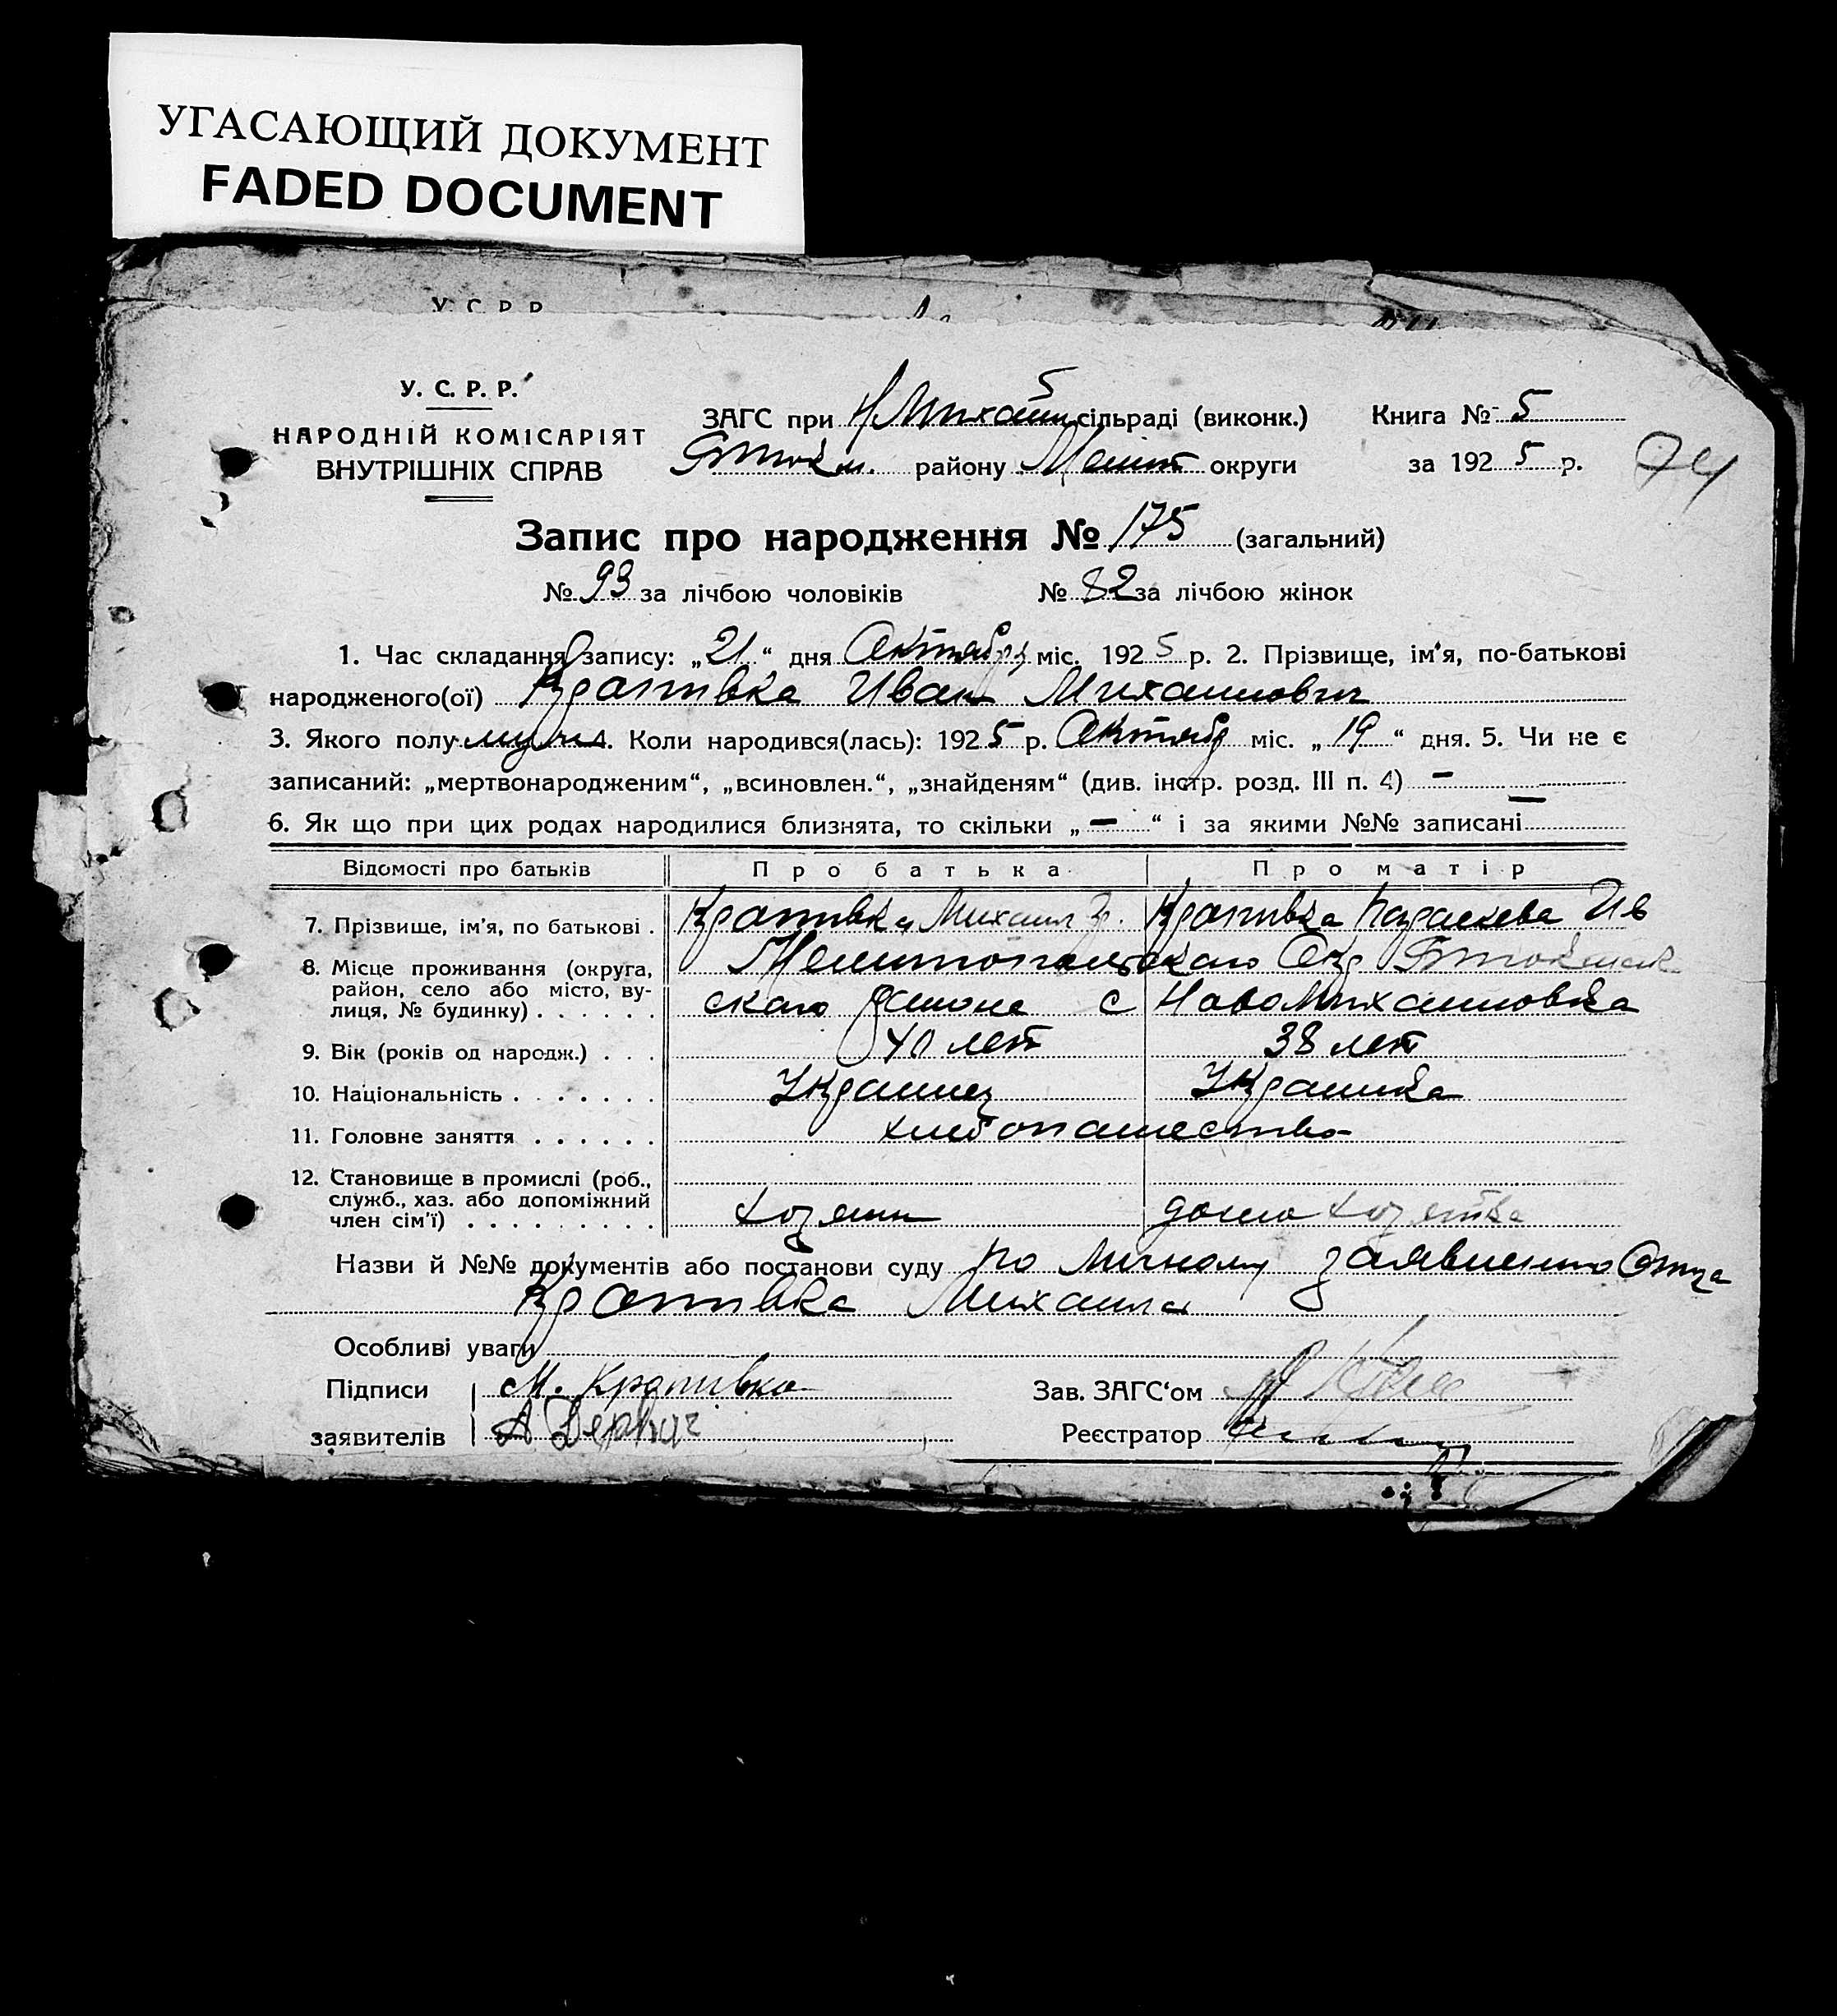 УГАСАЮЩИЙ ДОКУМЕНТ
FADED DOCUMENT
У. С. Р. Р.
У. С. Р. Р.
НАРОДНІЙ КОМІСАРІЯТ
ВНУТРІШНІХ СПРАВ
ЗАГС при Н Михайл сільраді (виконк.) Книга № 5
Бтокм. району Мелит округи за 1925 р.
74
Запис про народження № 175 (загальний)
№ 93 за лічбою чоловіків № 82 за лічбою жінок
1. Час складання запису: „21“ дня Октября міс. 1925 р. 2. Прізвище, ім'я, по-батькові
народженого(ої) Крапивка Иван Михаилович
3. Якого полу муж. Коли народився(лась): 1925 р. Октябр міс. „19“ дня. 5. Чи не є
записаний: „мертвонародженим“, „всиновлен.“, „знайденям“ (див. інстр. розд. III п. 4) –
6. Як що при цих родах народилися близнята, то скільки „–“ і за якими №№ записані –
Відомості про батьків Про батька Про матір
7. Прізвище, ім'я, по батькові . Крапивка Михаил Гр. Крапивка Параскева Ив
8. Місце проживання (округа, Мелитопольскаго Окр Бтокмак
район, село або місто, ву-
лиця, № будинку) . . . . . . скаго района с НовоМихаиловка
9. Вік (років од народж.) . . . 40 лет 38 лет
10. Національність . . . . . . . Украинец Украинка
11. Головне заняття . . . . . . хлебопашество
12. Становище в промислі (роб.,
служб., хаз. або допоміжний
член сім'ї) . . . . . . . . . . хозяин домохозяйка
Назви й №№ документів або постанови суду по личному заявлению Отца
Крапивка Михаила
Особливі уваги
Підписи М. Крапивка Зав. ЗАГС'ом
заявителів А Деркач Реєстратор